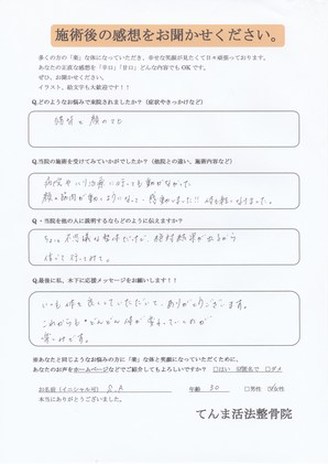 施術後の感想をお聞かせください。
多くの方の「楽」な体になっていただき、幸せな笑顔が見たくて日々頑張っております。
あなたの正直な感想を「辛口」「甘口」どんな内容でもOKです。
ぜひ、お聞かせください。
イラスト、絵文字も大歓迎です！！
Q.どのようなお悩みで来院されましたか？（症状やきっかけなど）
顔のマヒ
Q.当院の施術を受けてみていかがでしたか？（他院との違い、施術内容など）
病院やハリ治療に行っても動かなかった
顔の筋肉が動くようになって、感動しました!! 体も軽くなりました。
Q・当院を他の人に説明するならどのように伝えますか？
ちょっと不思議な整体だけど、絶対結果が出るから
行ってみて。
Q.最後に私、木下に応援メッセージをお願いします！！
いつも体を良くしていただいて、ありがとうございます。
これからもどんどん体が変わっていくのが
楽しみです。
※あなたと同じようなお悩みの方に「楽」な体と笑顔になっていただくために、
あなたのお声をホームページなどでご紹介してもよろしいですか？ □はい ☑匿名で □ダメ
お名前（イニシャル可） S.A 年齢 30 □男性 ☑女性
本当にありがとうございました。
てんま活法整骨院